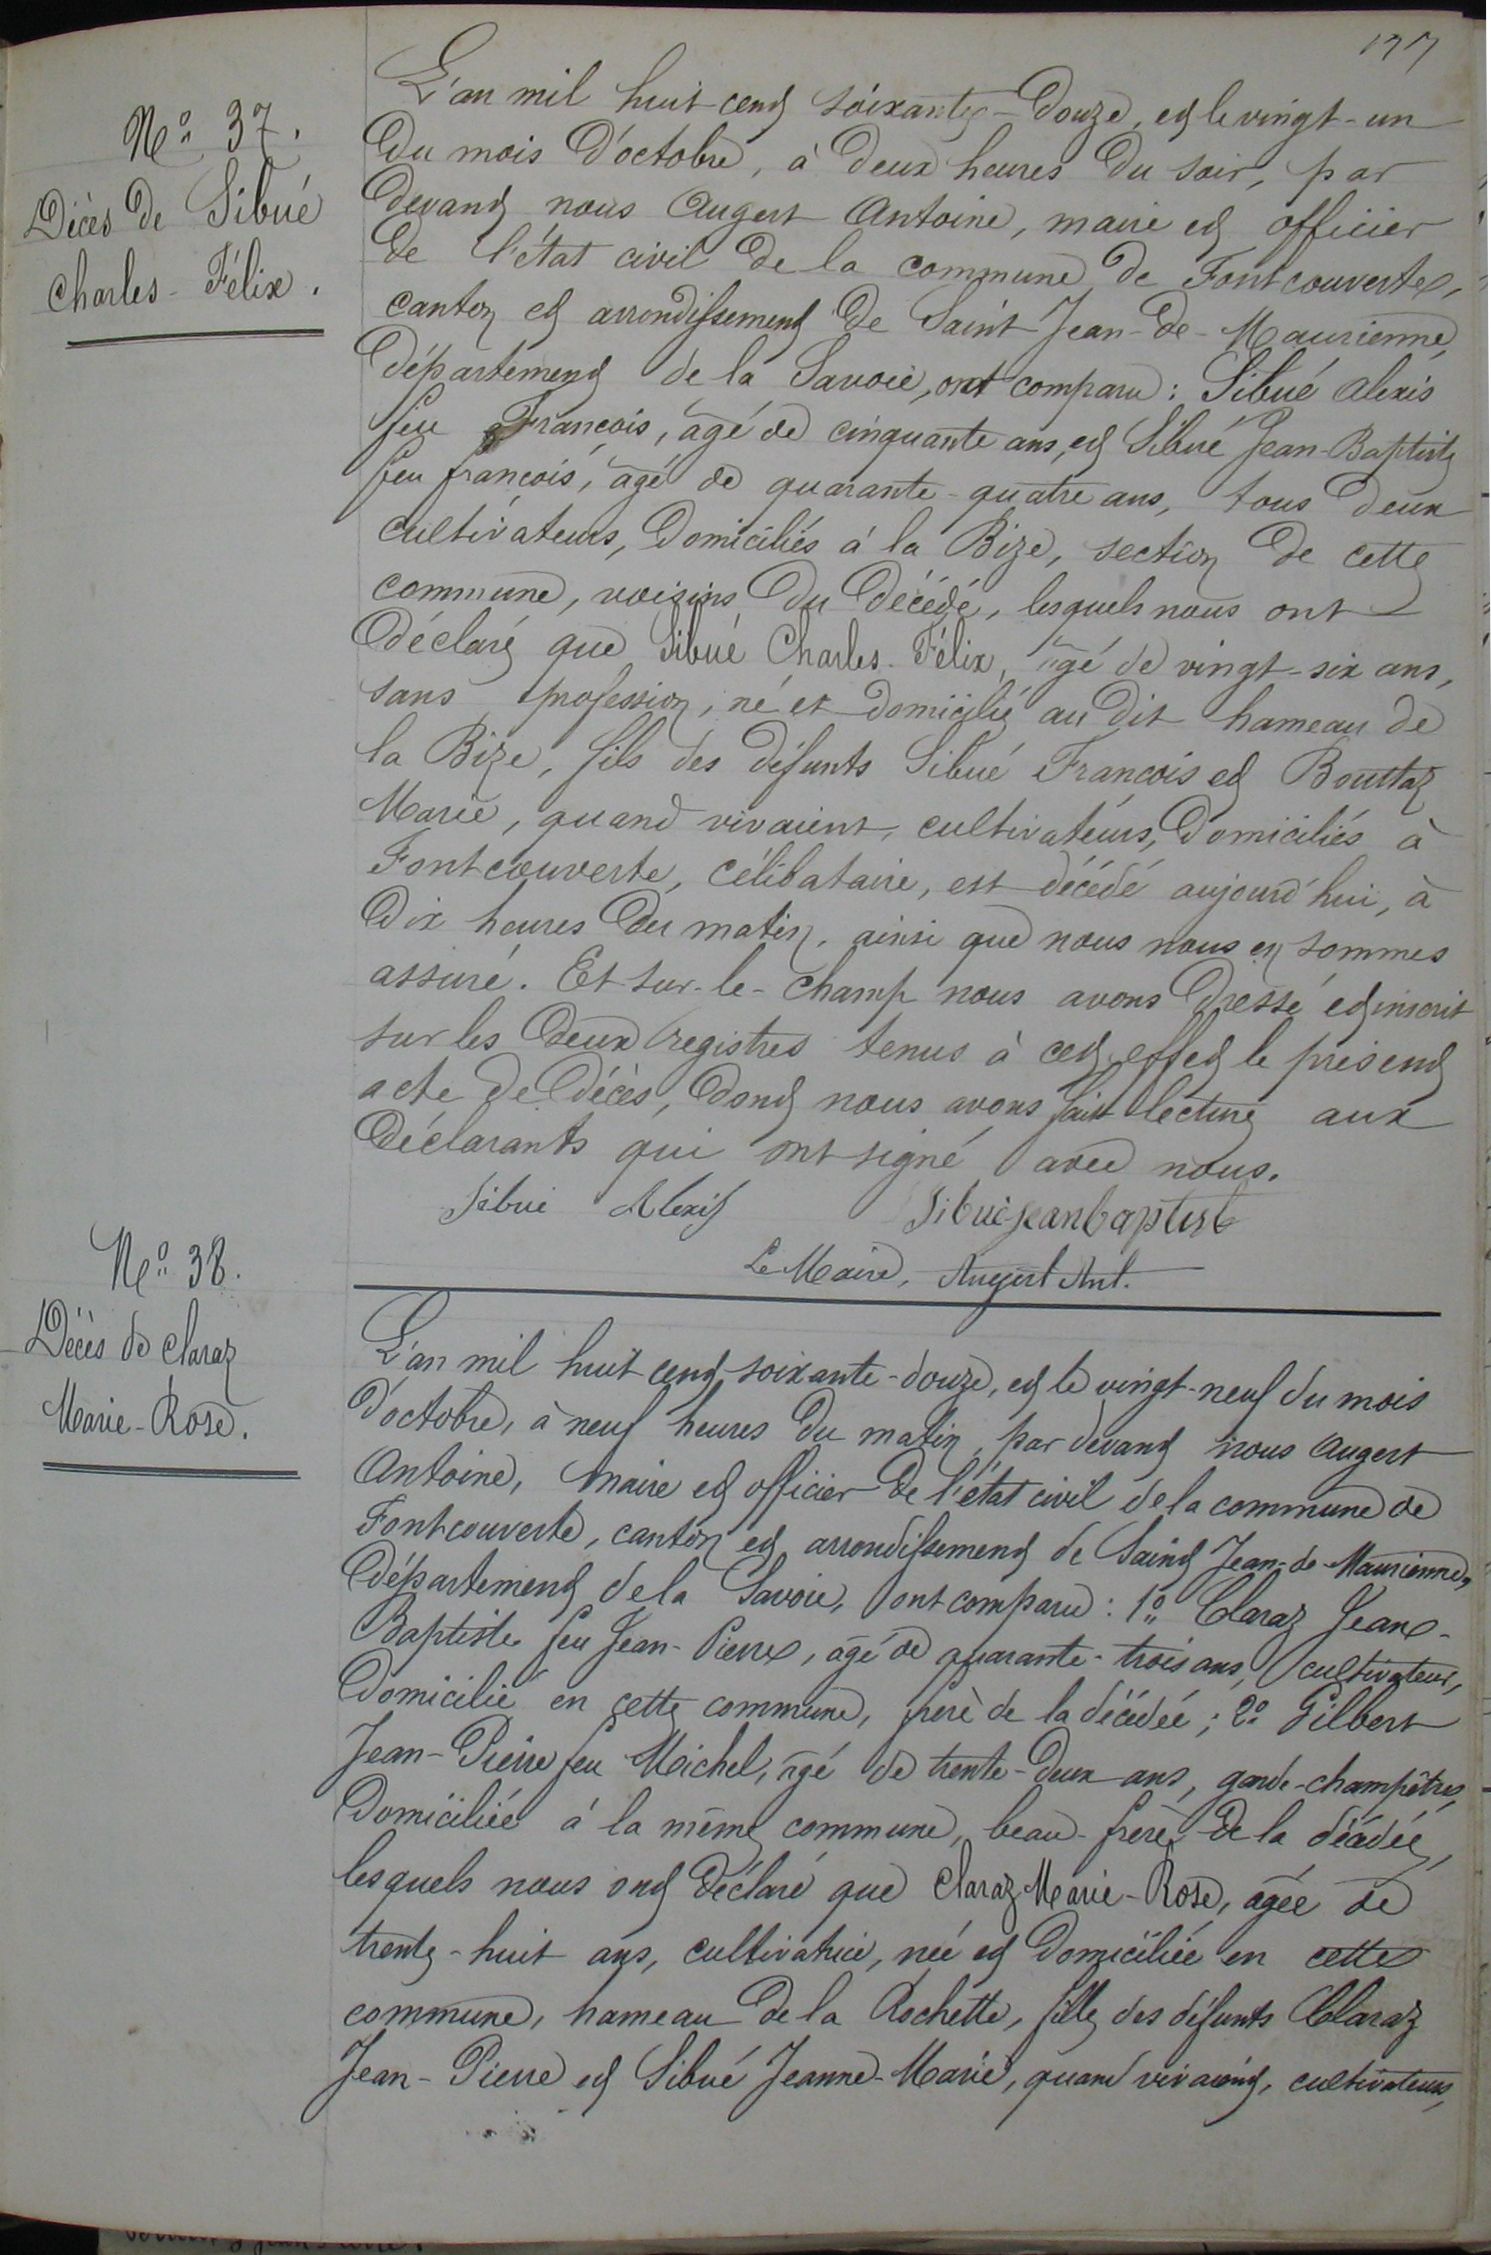 177
N° 37.
Décès de Sibué
Charles-Félix.
L'an mil huit cent soixante-douze, et le vingt-un
du mois d'octobre, à deux heures du soir, par
devant nous Augert Antoine, maire et officier
de l'état civil de la commune de Fontcouverte,
canton et arrondissement de Saint Jean-de-Maurienne,
département de la Savoie, ont comparu : Sibué Alexis
feu François, âgé de cinquante ans, et Sibué Jean-Baptiste
feu françois, âgé de quarante-quatre ans, tous deux
cultivateurs, domiciliés à la Bize, section de cette
commune, voisins du décédé, lesquels nous ont
déclaré que Sibué Charles-Félix, âgé de vingt-six ans,
sans profession, né et domicilié au dit hameau de
la Bize, fils des défunts Sibué François et Bouttaz
Marie, quand vivaient, cultivateurs, domiciliés à
Fontcouverte, célibataire, est décédé aujourd'hui, à
dix heures du matin, ainsi que nous nous en sommes
assuré. Et sur-le-champ nous avons dressé et inscrit
sur les deux registres tenus à cet effet le présent
acte de décès, dont nous avons fait lecture aux
déclarants qui ont signé avec nous.
Sibué Alexis Sibué jean baptist
Le Maire, Augert Ant.
N° 38.
Décès de Claraz
Marie-Rose.
L'an mil huit cent soixante-douze, et le vingt-neuf du mois
d'octobre, à neuf heures du matin, par devant nous Augert
Antoine, maire et officier de l'état civil de la commune de
Fontcouverte, canton et arrondissement de Saint Jean-de-Maurienne,
département de la Savoie, ont comparu : 1° Claraz Jean-
Baptiste feu Jean-Pierre, âgé de quarante-trois ans, cultivateur,
domicilié en cette commune, frère de la décédée ; 2° Gilbert
Jean-Pierre feu Michel, âgé de trente-deux ans, garde-champêtre,
domiciliée à la même commune, beau-frère de la décédée,
lesquels nous ont déclaré que Claraz Marie-Rose, âgée de
trente-huit ans, cultivatrice, née et domiciliée en cette
commune, hameau de la Rochette, fille des défunts Claraz
Jean-Pierre et Sibué Jeanne-Marie, quand vivaient, cultivateurs,